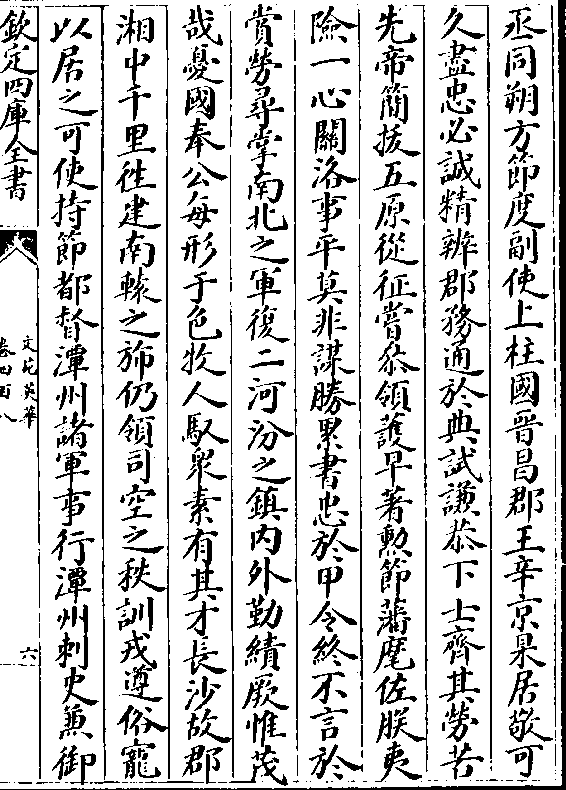 丞同朔方節度副使上柱國晉昌郡王辛京杲居敬可
久盡忠必誠精辨郡務通於典試謙恭下士齊其勞苦
先帝簡拔五原從征嘗叅領護早著勲節藩麾佐朕夷
險一心關洛事平莫非謀勝累書忠於甲令終不言於
賞勞尋掌南北之軍復二河汾之鎮内外勤績厥惟茂
哉憂國奉公每形于色牧人馭衆素有其才長沙故郡
湘中千里徃建南轅之斾仍領司空之秩訓戎遵俗寵
以居之可使持節都督潭州諸軍事行潭州刺史兼御
欽定四庫全書
文苑英華
卷四百八
六